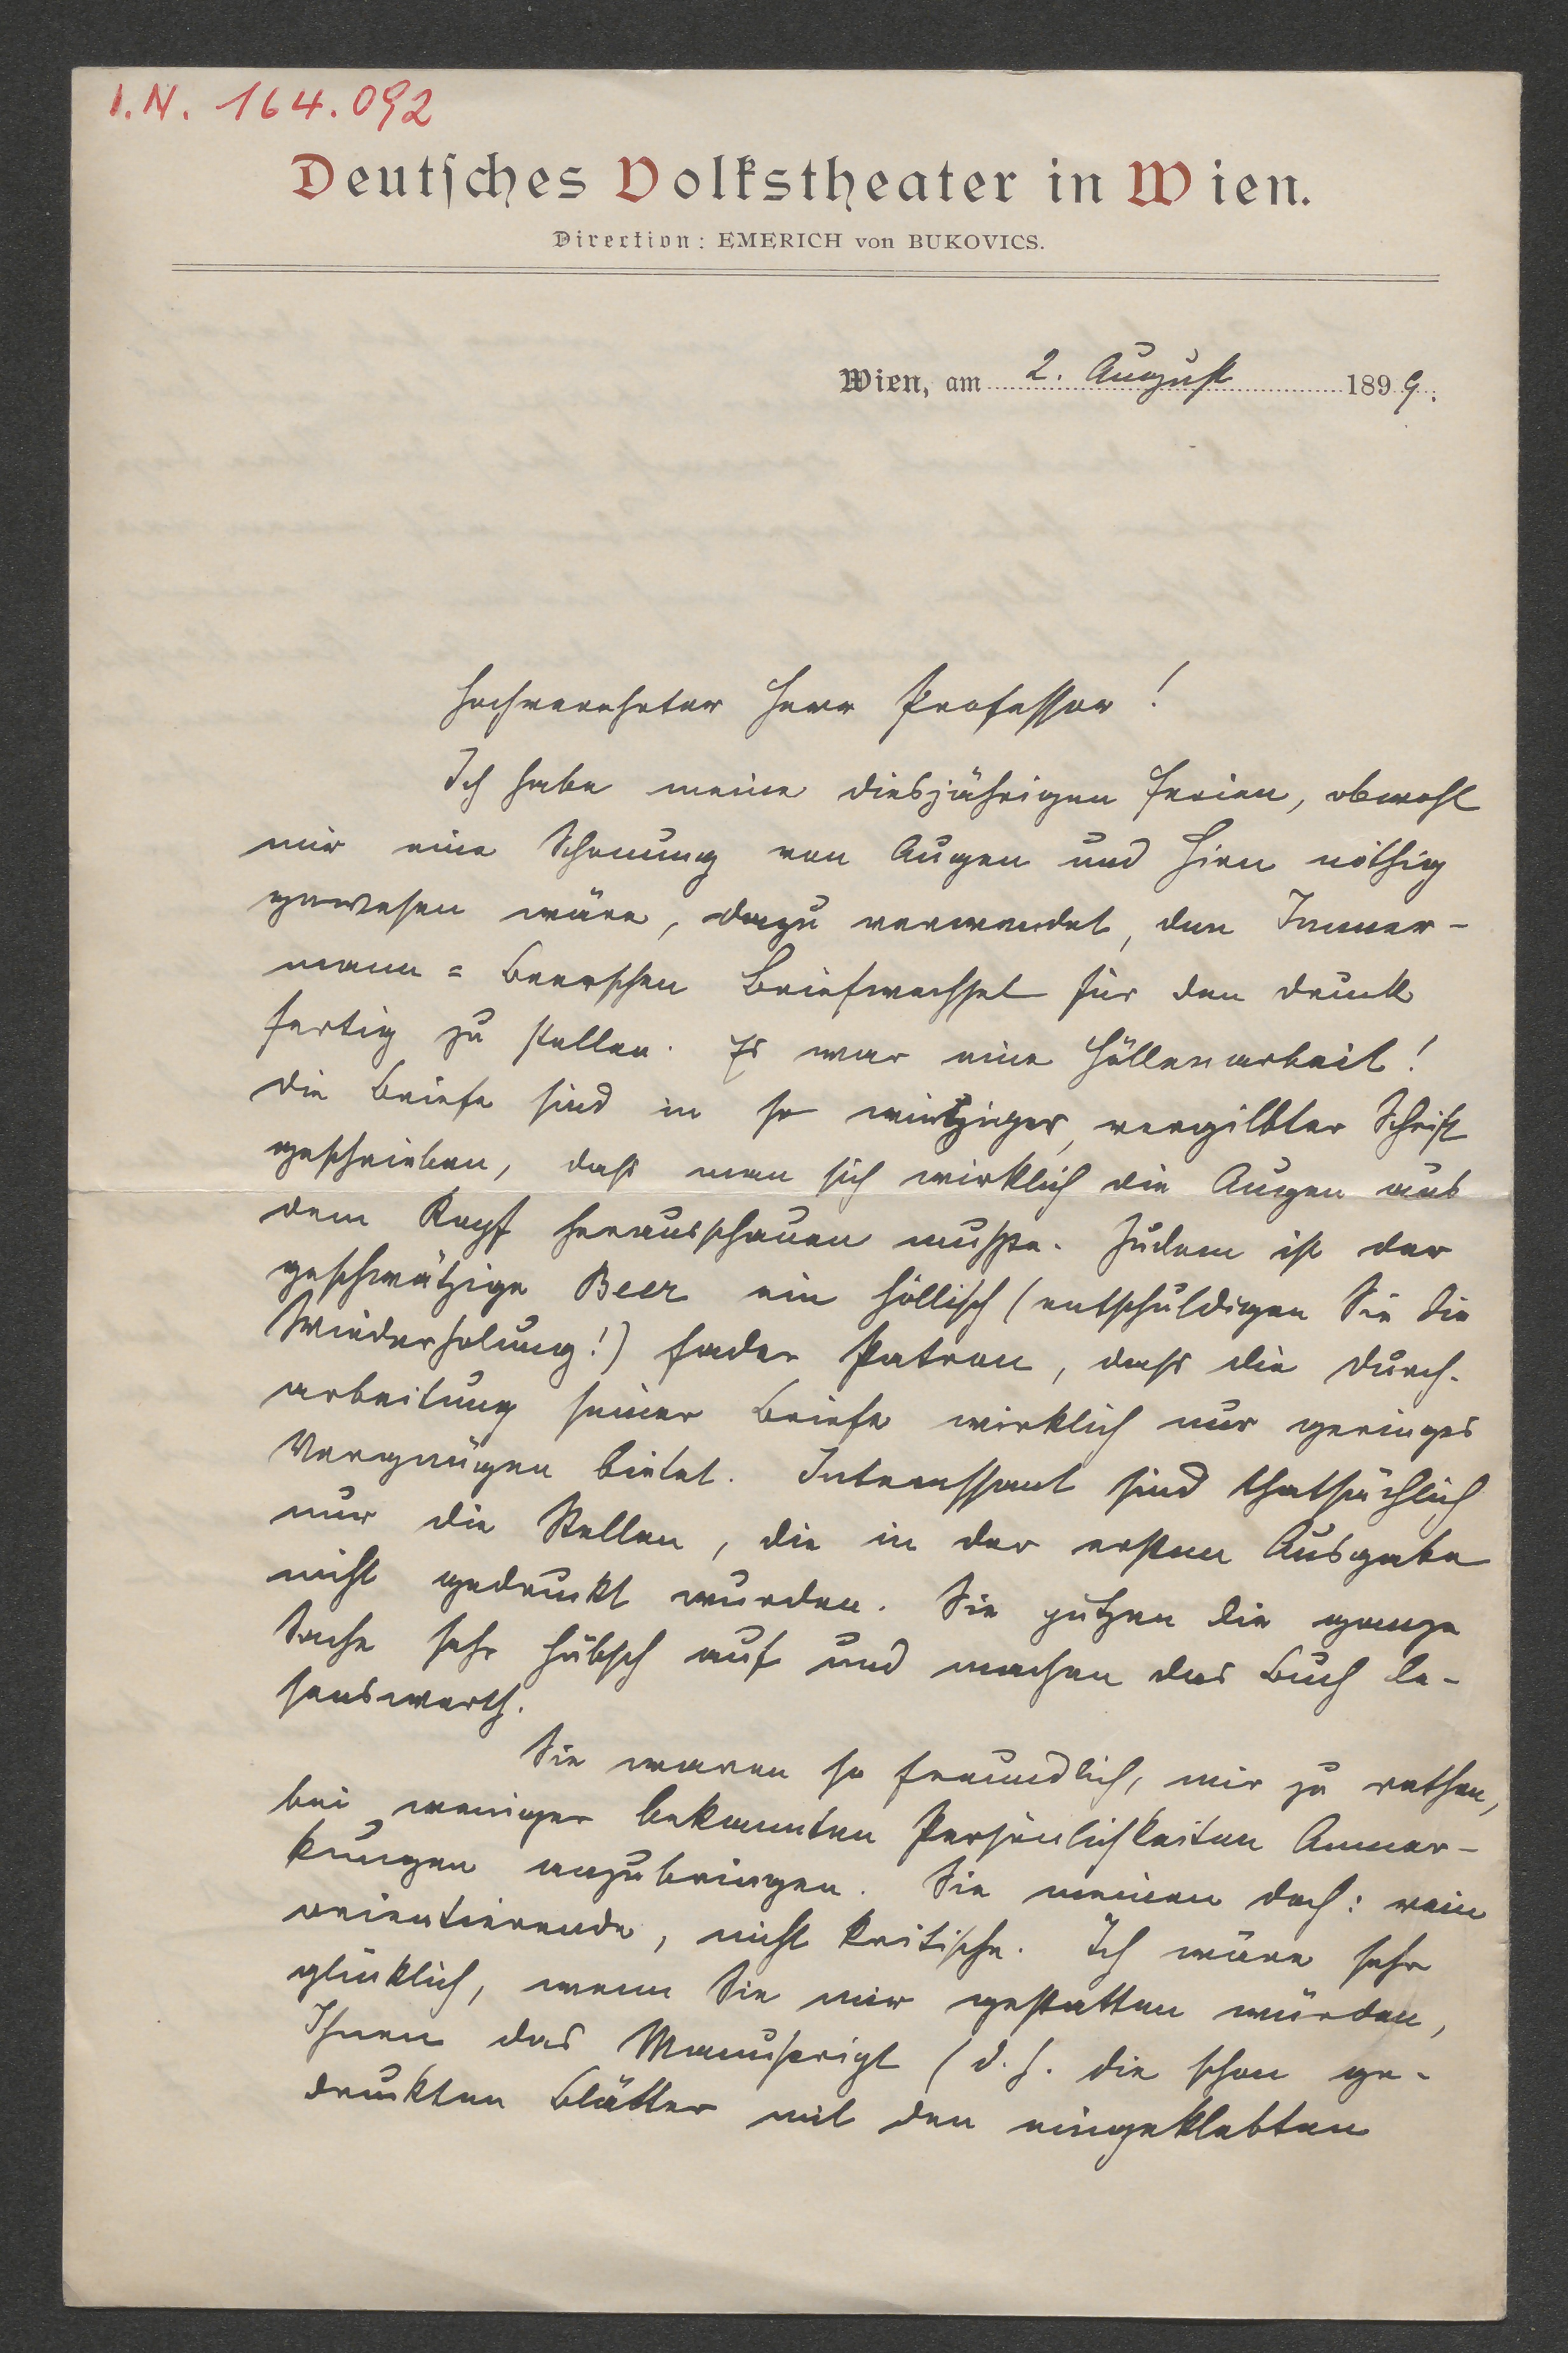 I.N. 164.092
Deutsches Volkstheater in Wien.
Direction: EMERICH von BUKOVICS.
Wien, am 2. August 1899.
Hochverehrter Herr Professor!
Ich habe meine diesjährigen Ferien, obwohl
mir eine Schonung von Augen und Hirn nöthig
gewesen wäre, dazu verwendet, den Immer-
mann=Beerschen Briefwechsel für den Druck
fertig zu stellen. Es war eine Höllenarbeit!
Die Briefe sind in so winziger, vergilbter Schrift
geschrieben, dass man sich wirklich die Augen aus
dem Kopf herausschauen musste. Zudem ist der
geschwätzige Beer ein höllisch (entschuldigen Sie die
Wiederholung!) fader Patron, dass die Durch-
arbeitung seiner Briefe wirklich nur geringes
Vergnügen bietet. Interessant sind thatsächlich
nur die Stellen, die in der ersten Ausgabe
nicht gedruckt wurden. Sie putzen die ganze
Sache sehr hübsch auf und machen das Buch le-
senswerth.
Sie waren so freundlich, mir zu rathen,
bei weniger bekannten Persönlichkeiten Anmer-
kungen anzubringen. Sie meinen doch: rein
orientierende, nicht kritische. Ich wäre sehr
glücklich, wenn Sie mir gestatten würden,
Ihnen das Manuscript (d. h. die schon ge-
druckten Blätter mit den eingeklebten